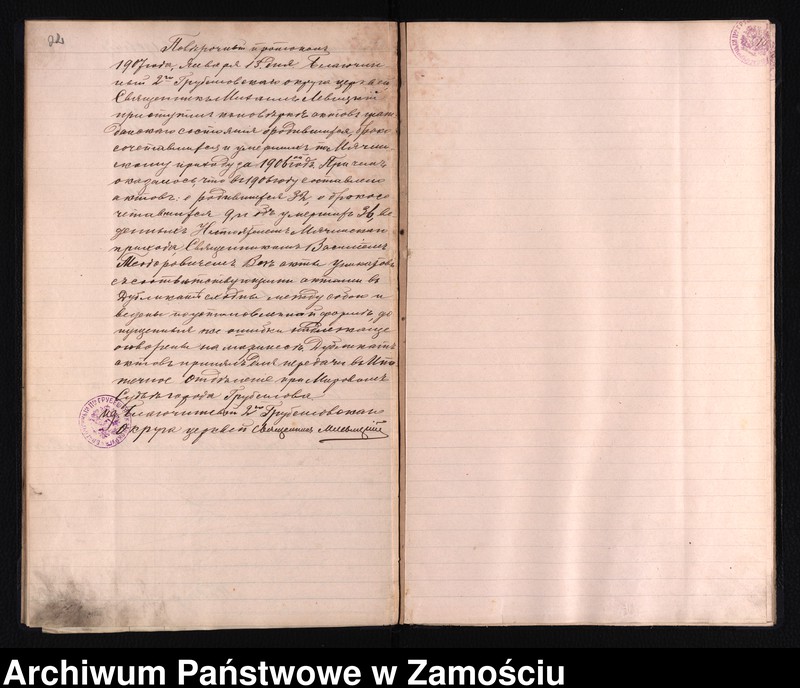 Поверочный протоколъ
1907 года, Января 15 дня Благочин
ный 2го Грубешовскаго округа церквей
Священникъ Михаилъ Левицкій
приступилъ къ поверке актовъ граж
данскаго состоянія о родившихся, брако
сочетавшихся и умершихъ по Мячин
скому приходу за 1906 годъ. Причемъ
оказалось, что въ 1906 году составлено
актовъ: о родившихся 32, о бракосо
четавшихся 9 и объ умершихъ 36, ве
денныхъ Настоятелемъ Мячинскаго
прихода, Священникомъ Василіемъ
Теодоровичемъ. Все акты Уника
съ соответствующими актами въ
Дубликате сходны между собою и
верны по установленной форме, до
пущенныя же ошибки
оговорены на Дубликатъ
актовъ принялъ для передачи въ Ипо
течное Отделеніе при Мировомъ
Суде города Грубешова.
Благочинный 2го Грубешовскаго
Округа церквей Священникъ МЛевицкій
Archiwum Państwowe w Zamościu